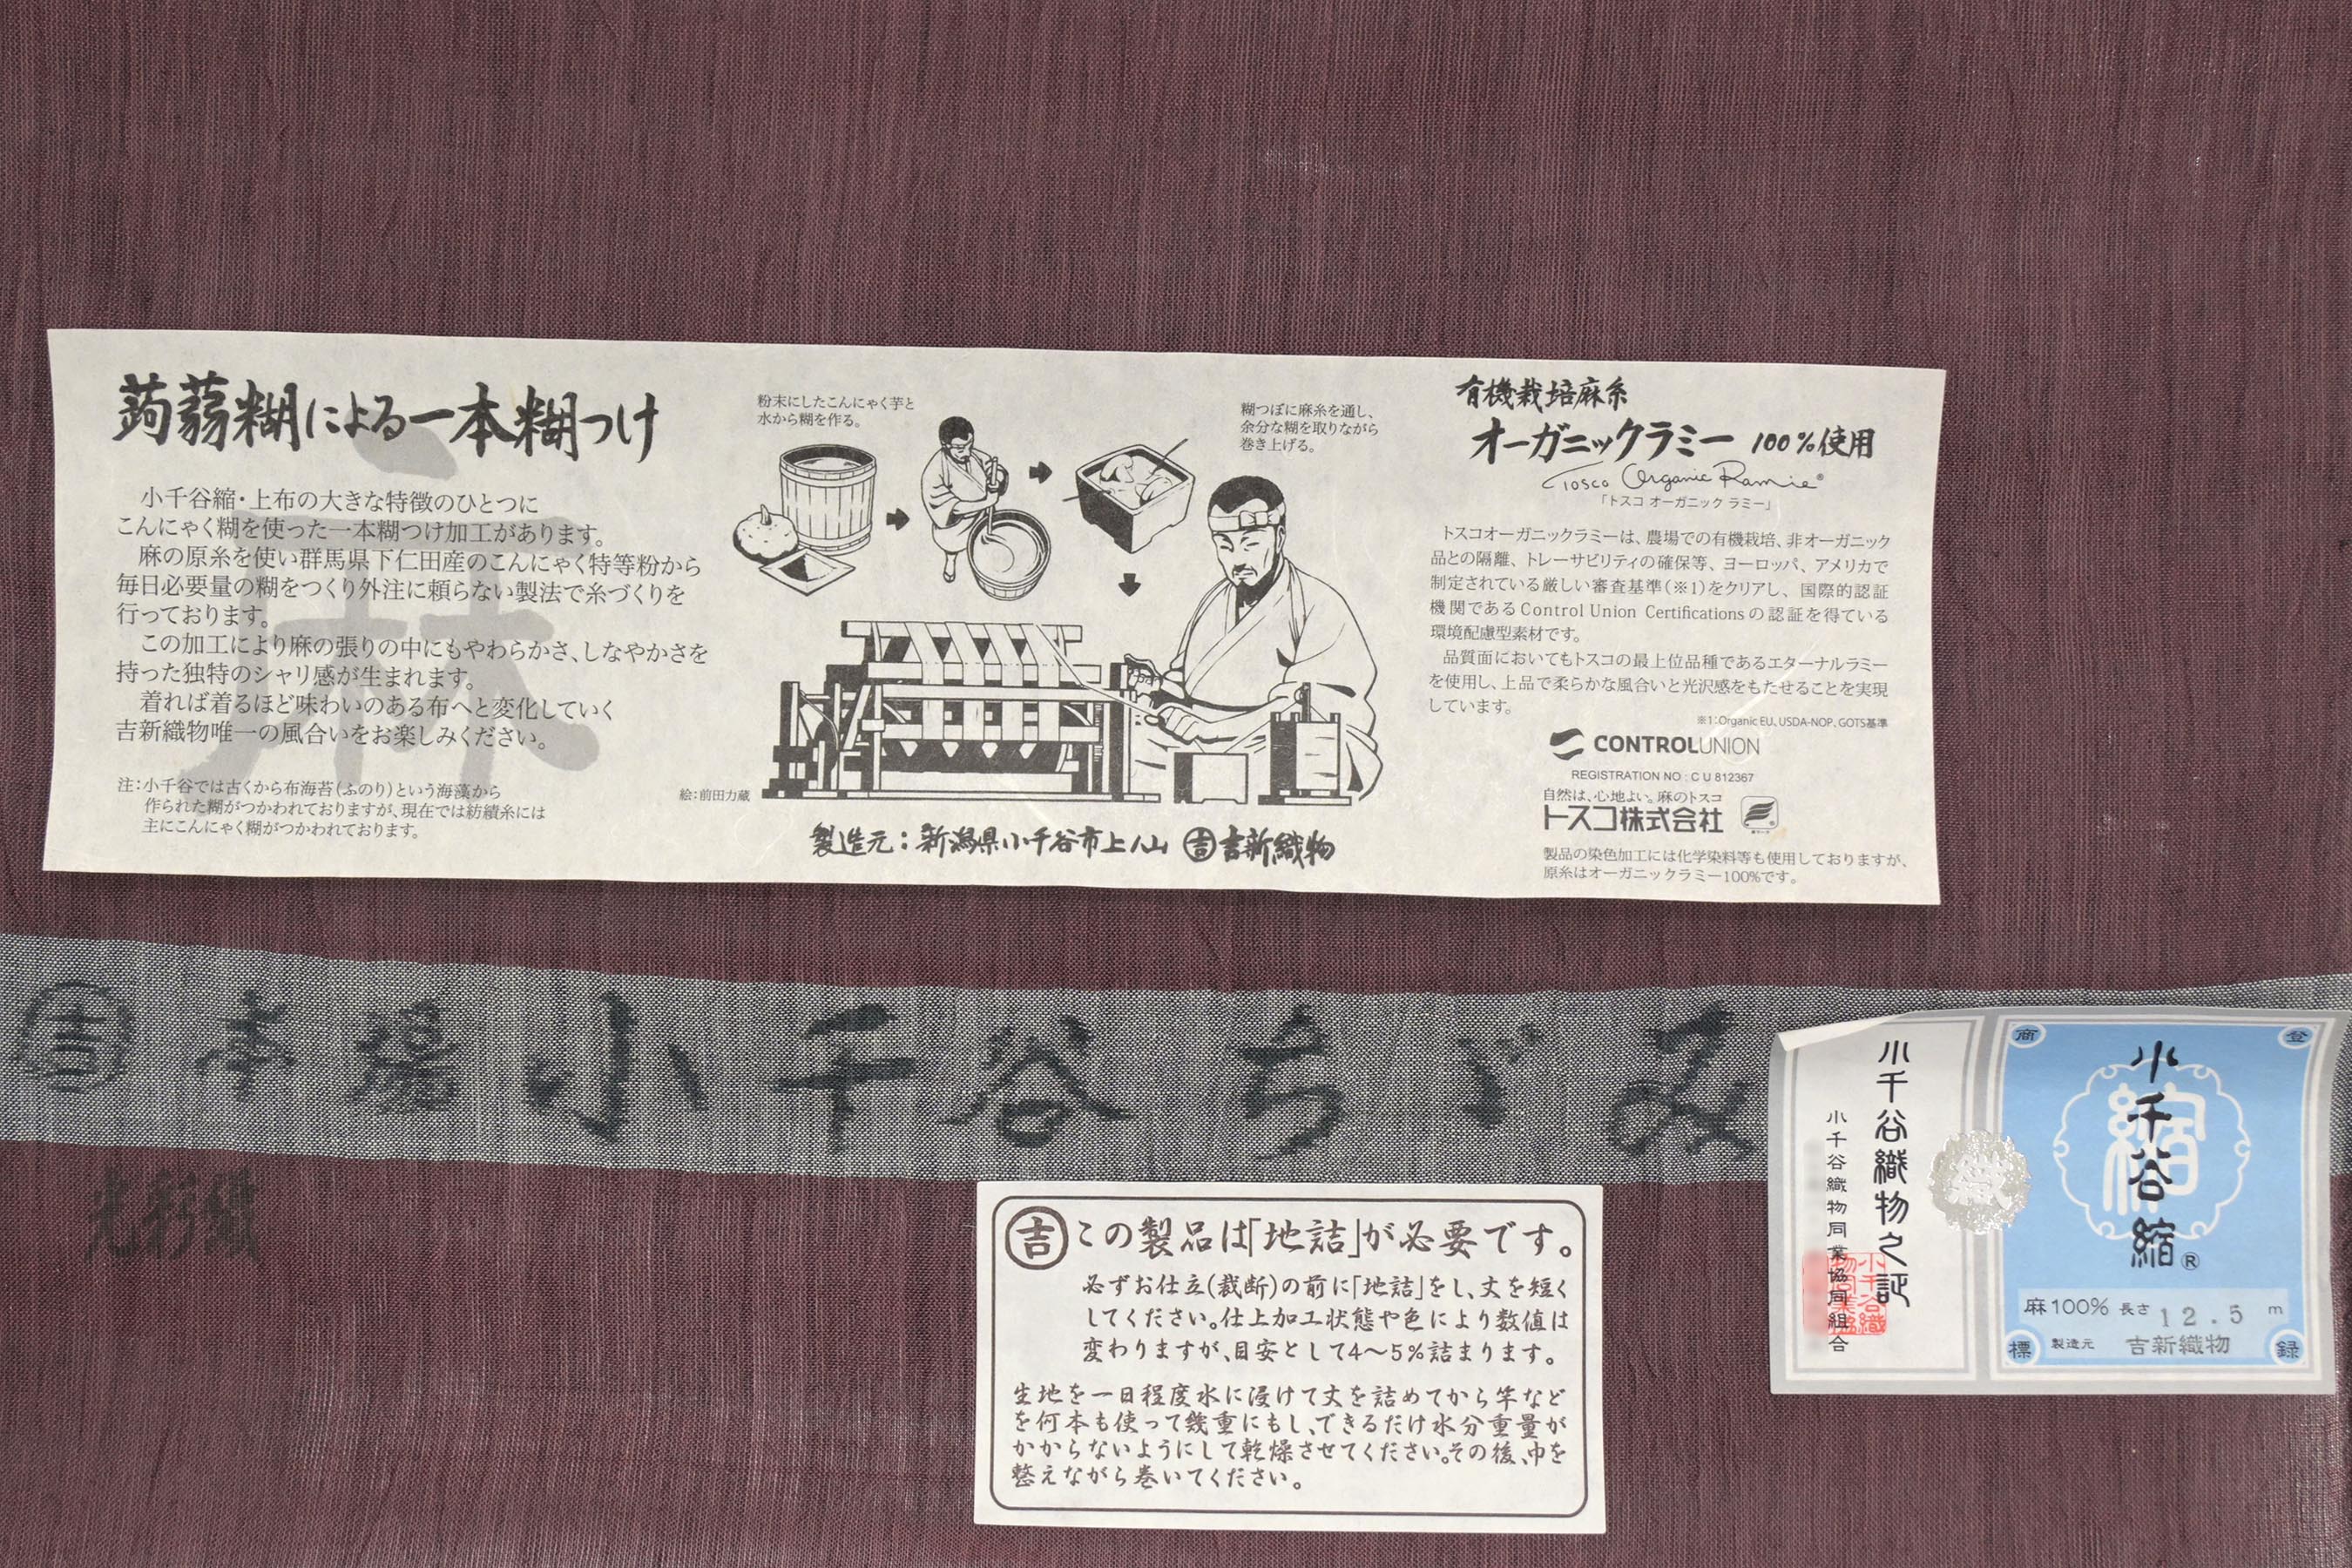 蒟蒻糊による一本糊つけ
小千谷縮・上布の大きな特徴のひとつに
こんにゃく糊を使った一本糊つけ加工があります。
麻の原糸を使い群馬県下仁田産のこんにゃく特等粉から
毎日必要量の糊をつくり外注に頼らない製法で糸づくりを
行っております。
この加工により麻の張りの中にもやわらかさ、しなやかさを
持った独特のシャリ感が生まれます。
着れば着るほど味わいのある布へと変化していく
吉新織物唯一の風合いをお楽しみください。
麻
注：小千谷では古くから布海苔（ふのり）という海藻から
作られた糊がつかわれておりますが、現在では紡績糸には
主にこんにゃく糊がつかわれております。
粉末にしたこんにゃく芋と
水から糊を作る。
糊つぼに麻糸を通し、
余分な糊を取りながら
巻き上げる。
絵：前田力蔵
製造元：新潟県小千谷市上ノ山 吉 吉新織物
有機栽培麻糸
オーガニックラミー 100%使用
Tosco Organic Ramie®
「トスコ オーガニック ラミー」
トスコオーガニックラミーは、農場での有機栽培、非オーガニック
品との隔離、トレーサビリティの確保等、ヨーロッパ、アメリカで
制定されている厳しい審査基準（※1）をクリアし、国際的認証
機関であるControl Union Certificationsの認証を得ている
環境配慮型素材です。
品質面においてもトスコの最上位品種であるエターナルラミー
を使用し、上品で柔らかな風合いと光沢感をもたせることを実現
しています。
※1：Organic EU、USDA-NOP、GOTS基準
CONTROLUNION
REGISTRATION NO : C U 812367
自然は、心地よい。麻のトスコ
トスコ株式会社
製品の染色加工には化学染料等も使用しておりますが、
原糸はオーガニックラミー100%です。
吉 本場小千谷ちゞみ
光彩織
吉 この製品は「地詰」が必要です。
必ずお仕立(裁断)の前に「地詰」をし、丈を短く
してください。仕上加工状態や色により数値は
変わりますが、目安として4～5%詰まります。
生地を一日程度水に浸けて丈を詰めてから竿など
を何本も使って幾重にもし、できるだけ水分重量が
かからないようにして乾燥させてください。その後、巾を
整えながら巻いてください。
小千谷織物之証
小千谷織物同業協同組合
商
登
標
録
縮
小千谷縮®
麻100% 長さ 12.5 m
製造元 吉新織物